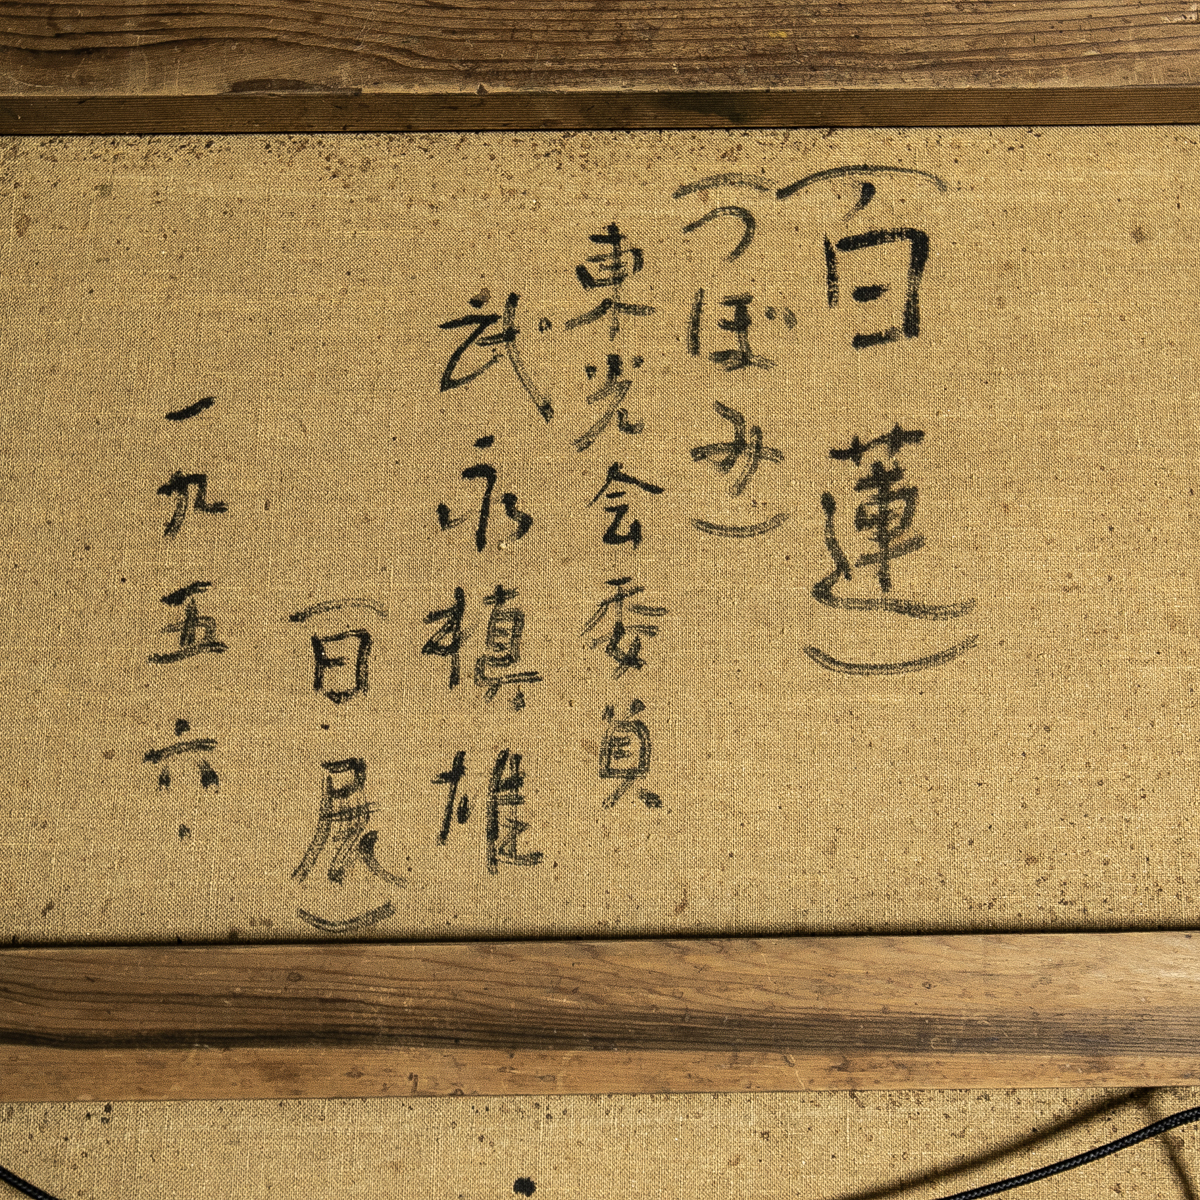 (白蓮)
(つぼみ)
東光会委員
武永槙雄
(日・展)
一九五六.